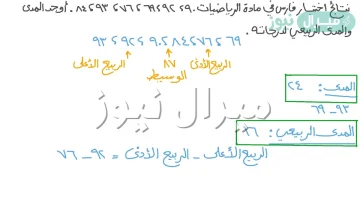 نتائج اختبار فارس في مادة الرياضيات ٩٠، ٩٢، ٦٩، ٧٦، ٩٣، ٨٤. أوجد المدى
والمدى الربيعي لدرجاته.
٦٩، ٧٦، ٨٤، ٩٠، ٩٢، ٩٣
الربيع الأدنى
٨٧
الوسيط
الربيع الأعلى
المدى: ٢٤
٩٣ - ٦٩
ميرال نيوز
المدى الربيعي: ١٦
الربيع الأعلى - الربيع الأدنى = ٩٢ - ٧٦